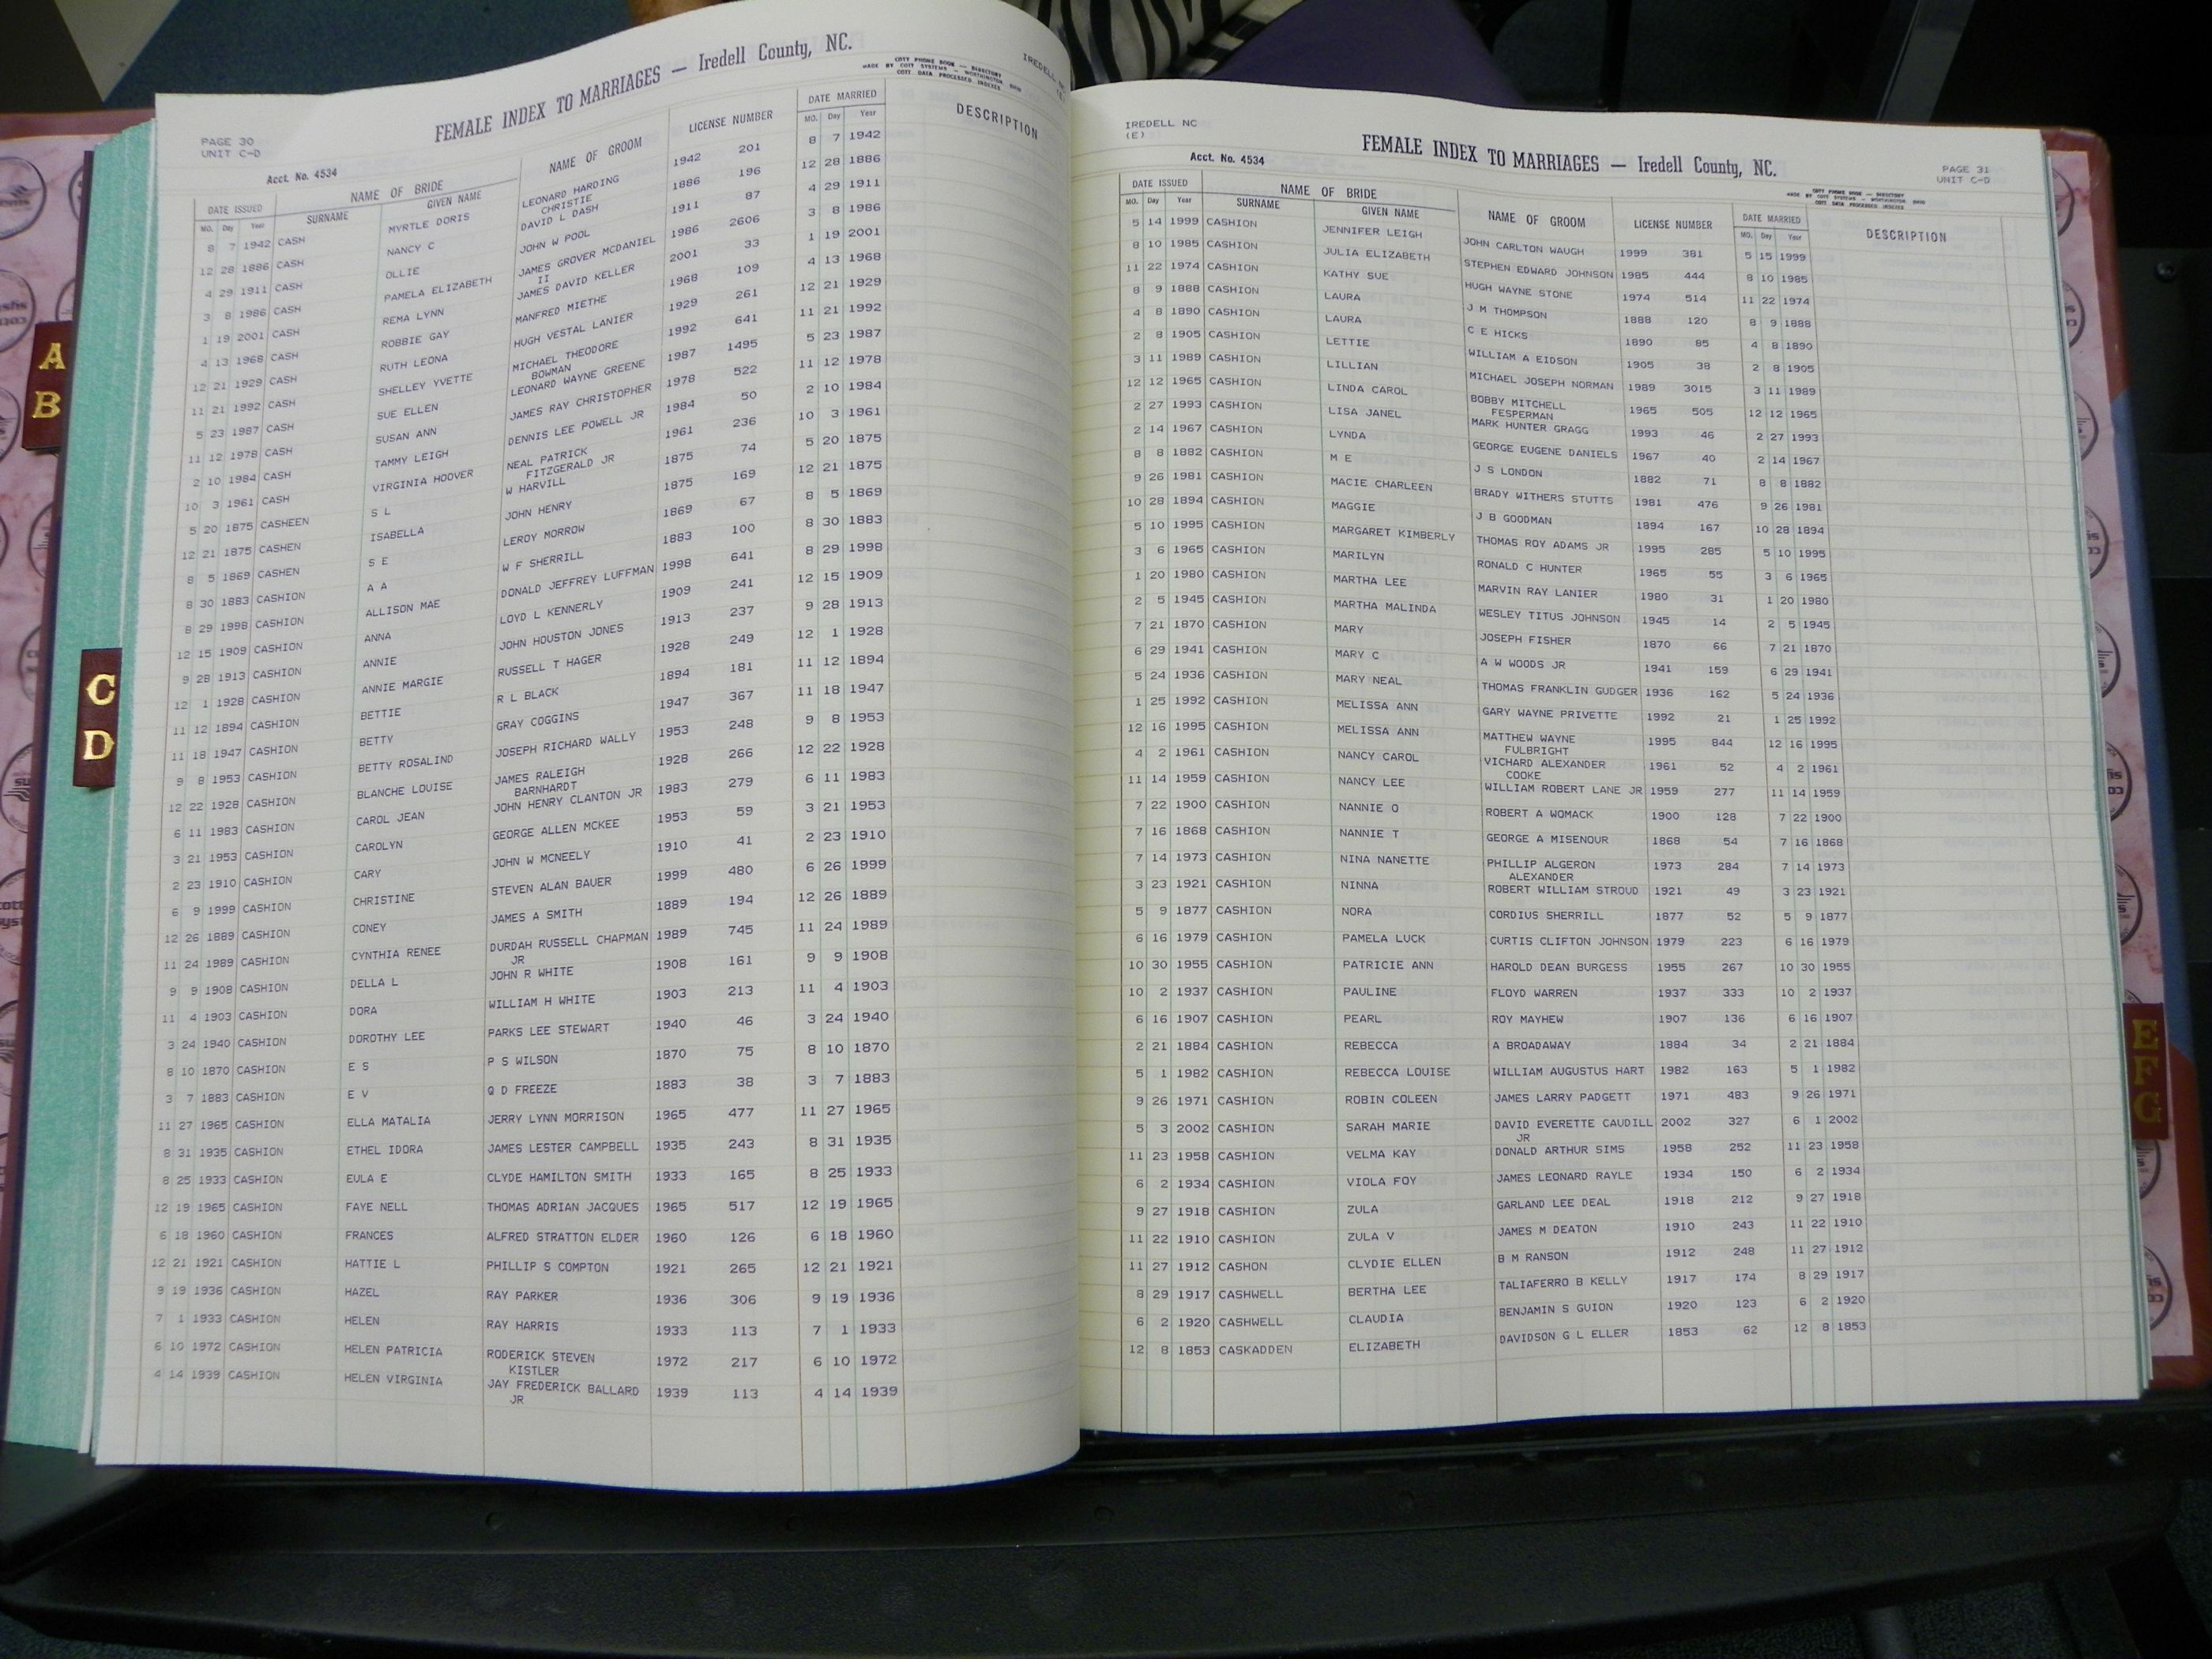 FEMALE INDEX TO MARRIAGES — Iredell County, NC.
COTT PHONE BOOK — DIRECTORY
MADE BY COTT SYSTEMS — WORTHINGTON OHIO
COTT DATA PROCESSED INDEXES
PAGE 30
UNIT C-D
Acct. No. 4534
DATE ISSUED NAME OF BRIDE NAME OF GROOM LICENSE NUMBER DATE MARRIED DESCRIPTION
MO. Day Year SURNAME GIVEN NAME MO. Day Year
8 7 1942 CASH MYRTLE DORIS LEONARD HARDING 1942 201 8 7 1942
CHRISTIE
12 28 1886 CASH NANCY C DAVID L DASH 1886 196 12 28 1886
4 29 1911 CASH OLLIE JOHN W POOL 1911 87 4 29 1911
3 8 1986 CASH PAMELA ELIZABETH JAMES GROVER MCDANIEL 1986 2606 3 8 1986
II
1 19 2001 CASH REMA LYNN JAMES DAVID KELLER 2001 33 1 19 2001
4 13 1968 CASH ROBBIE GAY MANFRED MIETHE 1968 109 4 13 1968
12 21 1929 CASH RUTH LEONA HUGH VESTAL LANIER 1929 261 12 21 1929
11 21 1992 CASH SHELLEY YVETTE MICHAEL THEODORE 1992 641 11 21 1992
BOWMAN
5 23 1987 CASH SUE ELLEN LEONARD WAYNE GREENE 1987 1495 5 23 1987
11 12 1978 CASH SUSAN ANN JAMES RAY CHRISTOPHER 1978 522 11 12 1978
2 10 1984 CASH TAMMY LEIGH DENNIS LEE POWELL JR 1984 50 2 10 1984
10 3 1961 CASH VIRGINIA HOOVER NEAL PATRICK 1961 236 10 3 1961
FITZGERALD JR
5 20 1875 CASHEEN S L W HARVILL 1875 74 5 20 1875
12 21 1875 CASHEN ISABELLA JOHN HENRY 1875 169 12 21 1875
8 5 1869 CASHEN S E LEROY MORROW 1869 67 8 5 1869
8 30 1883 CASHION A A W F SHERRILL 1883 100 8 30 1883
8 29 1998 CASHION ALLISON MAE DONALD JEFFREY LUFFMAN 1998 641 8 29 1998
12 15 1909 CASHION ANNA LOYD L KENNERLY 1909 241 12 15 1909
9 28 1913 CASHION ANNIE JOHN HOUSTON JONES 1913 237 9 28 1913
12 1 1928 CASHION ANNIE MARGIE RUSSELL T HAGER 1928 249 12 1 1928
11 12 1894 CASHION BETTIE R L BLACK 1894 181 11 12 1894
11 18 1947 CASHION BETTY GRAY COGGINS 1947 367 11 18 1947
9 8 1953 CASHION BETTY ROSALIND JOSEPH RICHARD WALLY 1953 248 9 8 1953
12 22 1928 CASHION BLANCHE LOUISE JAMES RALEIGH 1928 266 12 22 1928
BARNHARDT
6 11 1983 CASHION CAROL JEAN JOHN HENRY CLANTON JR 1983 279 6 11 1983
3 21 1953 CASHION CAROLYN GEORGE ALLEN MCKEE 1953 59 3 21 1953
2 23 1910 CASHION CARY JOHN W MCNEELY 1910 41 2 23 1910
6 9 1999 CASHION CHRISTINE STEVEN ALAN BAUER 1999 480 6 26 1999
12 26 1889 CASHION CONEY JAMES A SMITH 1889 194 12 26 1889
11 24 1989 CASHION CYNTHIA RENEE DURDAH RUSSELL CHAPMAN 1989 745 11 24 1989
JR
9 9 1908 CASHION DELLA L JOHN R WHITE 1908 161 9 9 1908
11 4 1903 CASHION DORA WILLIAM H WHITE 1903 213 11 4 1903
3 24 1940 CASHION DOROTHY LEE PARKS LEE STEWART 1940 46 3 24 1940
8 10 1870 CASHION E S P S WILSON 1870 75 8 10 1870
3 7 1883 CASHION E V Q D FREEZE 1883 38 3 7 1883
11 27 1965 CASHION ELLA MATALIA JERRY LYNN MORRISON 1965 477 11 27 1965
8 31 1935 CASHION ETHEL IDORA JAMES LESTER CAMPBELL 1935 243 8 31 1935
8 25 1933 CASHION EULA E CLYDE HAMILTON SMITH 1933 165 8 25 1933
12 19 1965 CASHION FAYE NELL THOMAS ADRIAN JACQUES 1965 517 12 19 1965
6 18 1960 CASHION FRANCES ALFRED STRATTON ELDER 1960 126 6 18 1960
12 21 1921 CASHION HATTIE L PHILLIP S COMPTON 1921 265 12 21 1921
9 19 1936 CASHION HAZEL RAY PARKER 1936 306 9 19 1936
7 1 1933 CASHION HELEN RAY HARRIS 1933 113 7 1 1933
6 10 1972 CASHION HELEN PATRICIA RODERICK STEVEN 1972 217 6 10 1972
KISTLER
4 14 1939 CASHION HELEN VIRGINIA JAY FREDERICK BALLARD 1939 113 4 14 1939
JR
A
B
C
D
IREDELL NC
(E)
Acct. No. 4534
FEMALE INDEX TO MARRIAGES — Iredell County, NC.
PAGE 31
UNIT C-D
COTT PHONE BOOK — DIRECTORY
MADE BY COTT SYSTEMS — WORTHINGTON OHIO
COTT DATA PROCESSED INDEXES
DATE ISSUED NAME OF BRIDE NAME OF GROOM LICENSE NUMBER DATE MARRIED DESCRIPTION
MO. Day Year SURNAME GIVEN NAME MO. Day Year
5 14 1999 CASHION JENNIFER LEIGH JOHN CARLTON WAUGH 1999 381 5 15 1999
8 10 1985 CASHION JULIA ELIZABETH STEPHEN EDWARD JOHNSON 1985 444 8 10 1985
11 22 1974 CASHION KATHY SUE HUGH WAYNE STONE 1974 514 11 22 1974
8 9 1888 CASHION LAURA J M THOMPSON 1888 120 8 9 1888
4 8 1890 CASHION LAURA C E HICKS 1890 85 4 8 1890
2 8 1905 CASHION LETTIE WILLIAM A EIDSON 1905 38 2 8 1905
3 11 1989 CASHION LILLIAN MICHAEL JOSEPH NORMAN 1989 3015 3 11 1989
12 12 1965 CASHION LINDA CAROL BOBBY MITCHELL 1965 505 12 12 1965
FESPERMAN
2 27 1993 CASHION LISA JANEL MARK HUNTER GRAGG 1993 46 2 27 1993
2 14 1967 CASHION LYNDA GEORGE EUGENE DANIELS 1967 40 2 14 1967
8 8 1882 CASHION M E J S LONDON 1882 71 8 8 1882
9 26 1981 CASHION MACIE CHARLEEN BRADY WITHERS STUTTS 1981 476 9 26 1981
10 28 1894 CASHION MAGGIE J B GOODMAN 1894 167 10 28 1894
5 10 1995 CASHION MARGARET KIMBERLY THOMAS ROY ADAMS JR 1995 285 5 10 1995
3 6 1965 CASHION MARILYN RONALD C HUNTER 1965 55 3 6 1965
1 20 1980 CASHION MARTHA LEE MARVIN RAY LANIER 1980 31 1 20 1980
2 5 1945 CASHION MARTHA MALINDA WESLEY TITUS JOHNSON 1945 14 2 5 1945
7 21 1870 CASHION MARY JOSEPH FISHER 1870 66 7 21 1870
6 29 1941 CASHION MARY C A W WOODS JR 1941 159 6 29 1941
5 24 1936 CASHION MARY NEAL THOMAS FRANKLIN GUDGER 1936 162 5 24 1936
1 25 1992 CASHION MELISSA ANN GARY WAYNE PRIVETTE 1992 21 1 25 1992
12 16 1995 CASHION MELISSA ANN MATTHEW WAYNE 1995 844 12 16 1995
FULBRIGHT
4 2 1961 CASHION NANCY CAROL VICHARD ALEXANDER 1961 52 4 2 1961
COOKE
11 14 1959 CASHION NANCY LEE WILLIAM ROBERT LANE JR 1959 277 11 14 1959
7 22 1900 CASHION NANNIE O ROBERT A WOMACK 1900 128 7 22 1900
7 16 1868 CASHION NANNIE T GEORGE A MISENOUR 1868 54 7 16 1868
7 14 1973 CASHION NINA NANETTE PHILLIP ALGERON 1973 284 7 14 1973
ALEXANDER
3 23 1921 CASHION NINNA ROBERT WILLIAM STROUD 1921 49 3 23 1921
5 9 1877 CASHION NORA CORDIUS SHERRILL 1877 52 5 9 1877
6 16 1979 CASHION PAMELA LUCK CURTIS CLIFTON JOHNSON 1979 223 6 16 1979
10 30 1955 CASHION PATRICIE ANN HAROLD DEAN BURGESS 1955 267 10 30 1955
10 2 1937 CASHION PAULINE FLOYD WARREN 1937 333 10 2 1937
6 16 1907 CASHION PEARL ROY MAYHEW 1907 136 6 16 1907
2 21 1884 CASHION REBECCA A BROADAWAY 1884 34 2 21 1884
5 1 1982 CASHION REBECCA LOUISE WILLIAM AUGUSTUS HART 1982 163 5 1 1982
9 26 1971 CASHION ROBIN COLEEN JAMES LARRY PADGETT 1971 483 9 26 1971
5 3 2002 CASHION SARAH MARIE DAVID EVERETTE CAUDILL 2002 327 6 1 2002
JR
11 23 1958 CASHION VELMA KAY DONALD ARTHUR SIMS 1958 252 11 23 1958
6 2 1934 CASHION VIOLA FOY JAMES LEONARD RAYLE 1934 150 6 2 1934
9 27 1918 CASHION ZULA GARLAND LEE DEAL 1918 212 9 27 1918
11 22 1910 CASHION ZULA V JAMES M DEATON 1910 243 11 22 1910
11 27 1912 CASHON CLYDIE ELLEN B M RANSON 1912 248 11 27 1912
8 29 1917 CASHWELL BERTHA LEE TALIAFERRO B KELLY 1917 174 8 29 1917
6 2 1920 CASHWELL CLAUDIA BENJAMIN S GUION 1920 123 6 2 1920
12 8 1853 CASKADDEN ELIZABETH DAVIDSON G L ELLER 1853 62 12 8 1853
E
F
G